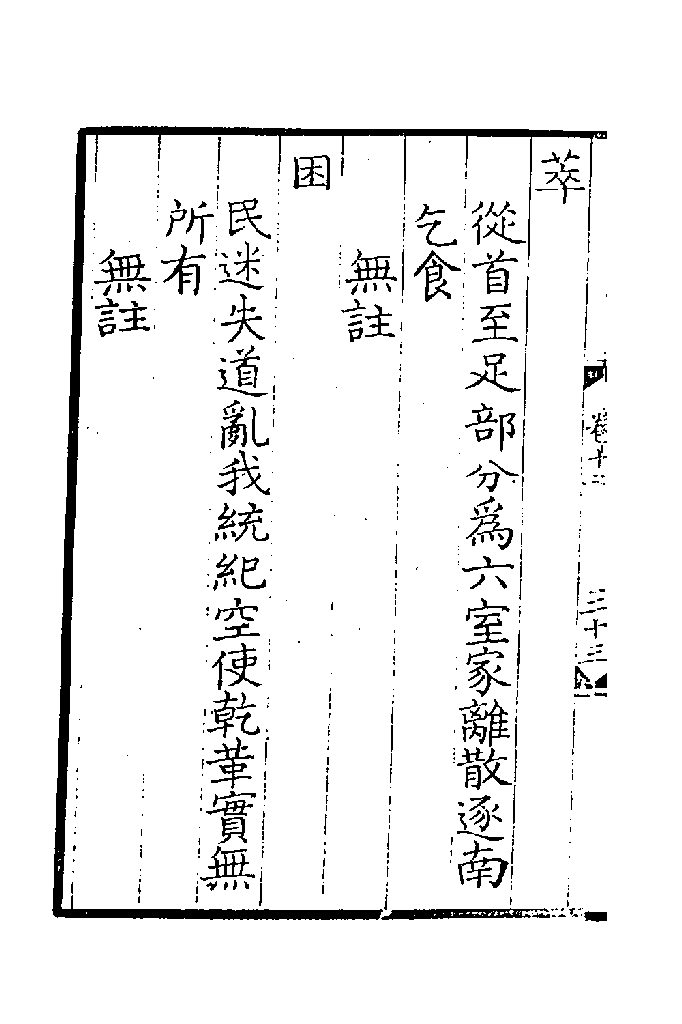 萃
從首至足部分爲六室家離散逐南
乞食
無註
困
民迷失道亂我統紀空使乾革實無
所有
無註
卷十二
三十三